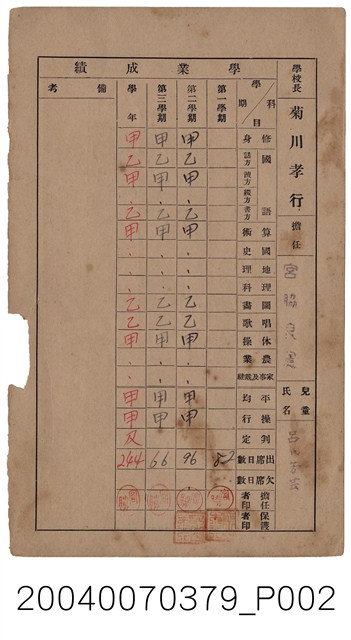 學校長 菊川孝行 擔任 宮脇
兒童氏名 呂
學業成績
科目 學期 第一學期 第二學期 第三學期 學年 備考
修身 甲 甲 甲
國語 話方 乙 乙 乙
讀方 甲 甲 甲
綴方 . . .
書方 乙 乙 乙
算術 甲 甲 甲
國史 . . .
地理 . . .
理科 . . .
圖畫 乙 乙 乙
唱歌 乙 乙 乙
体操 甲 甲 甲
農業 . . .
家事及裁縫 . . .
平均 甲 甲 甲
操行 甲 甲 甲
判定 及
出席日數 82 96 66 244
欠席日數
擔任者印
保護者印
20040070379_P002